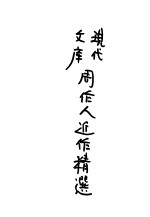 現代
文庫
周作人近作精選